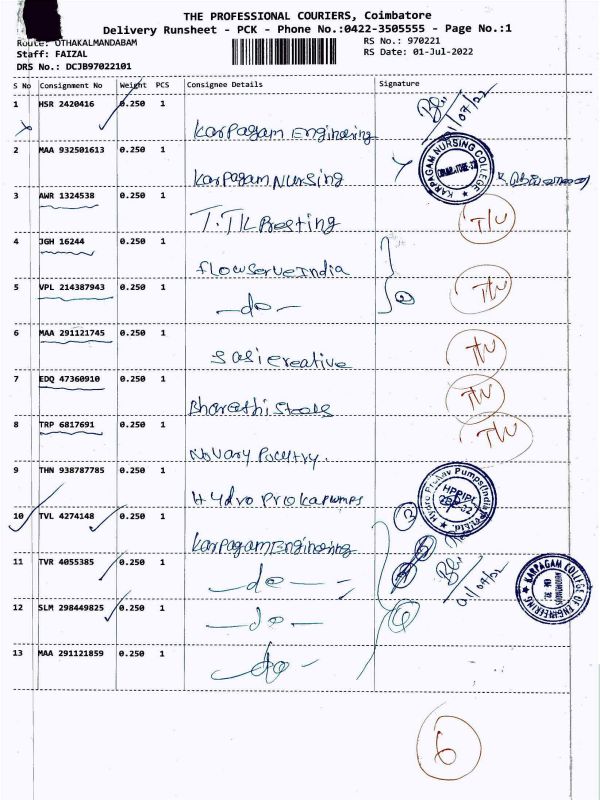 THE PROFESSIONAL COURIERS, Coimbatore
Delivery Runsheet - PCK - Phone No.:0422-3505555 - Page No.:1
Route: OTHAKALMANDABAM
RS No.: 970221
Staff: FAIZAL
RS Date: 01-Jul-2022
DRS No.: DCJB97022101
S No Consignment No Weight PCS Consignee Details Signature
1 HSR 2420416 0.250 1
01/07/22
Karpagam Engineering
2 MAA 932501613 0.250 1
Karpagam Nursing
KARPAGAM NURSING COLLEGE
3 AWR 1324538 0.250 1
T/U
4 JGH 16244 0.250 1
flowserve India
5 VPL 214387943 0.250 1
-do-
2
T/U
6 MAA 291121745 0.250 1
Sasi creative
T/U
7 EDQ 47360910 0.250 1
Bharathi Steels
T/U
8 TRP 6817691 0.250 1
T/U
9 THN 938787785 0.250 1
Hydro Prokav Pumps
Hydro Prokav Pumps(India)
10 TVL 4274148 0.250 1
Karpagam Engineering
11 TVR 4055385 0.250 1
-do-
KARPAGAM COLLEGE OF ENGINEERING
12 SLM 298449825 0.250 1
-do-
13 MAA 291121859 0.250 1
-do-
6